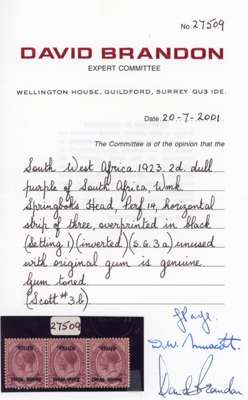 No. 27509
DAVID BRANDON
EXPERT COMMITTEE
WELLINGTON HOUSE, GUILDFORD, SURREY GU3 1DE.
Date 20-7-2001
The Committee is of the opinion that the
South West Africa 1923. 2d. dull
purple of South Africa, Wmk.
Springboks Head, Perf 14, horizontal
strip of three, overprinted in black
(Setting 1) (inverted) (S.G. 3a) unused
with original gum is genuine.
Gum toned.
(Scott #3b)
27509
David Brandon